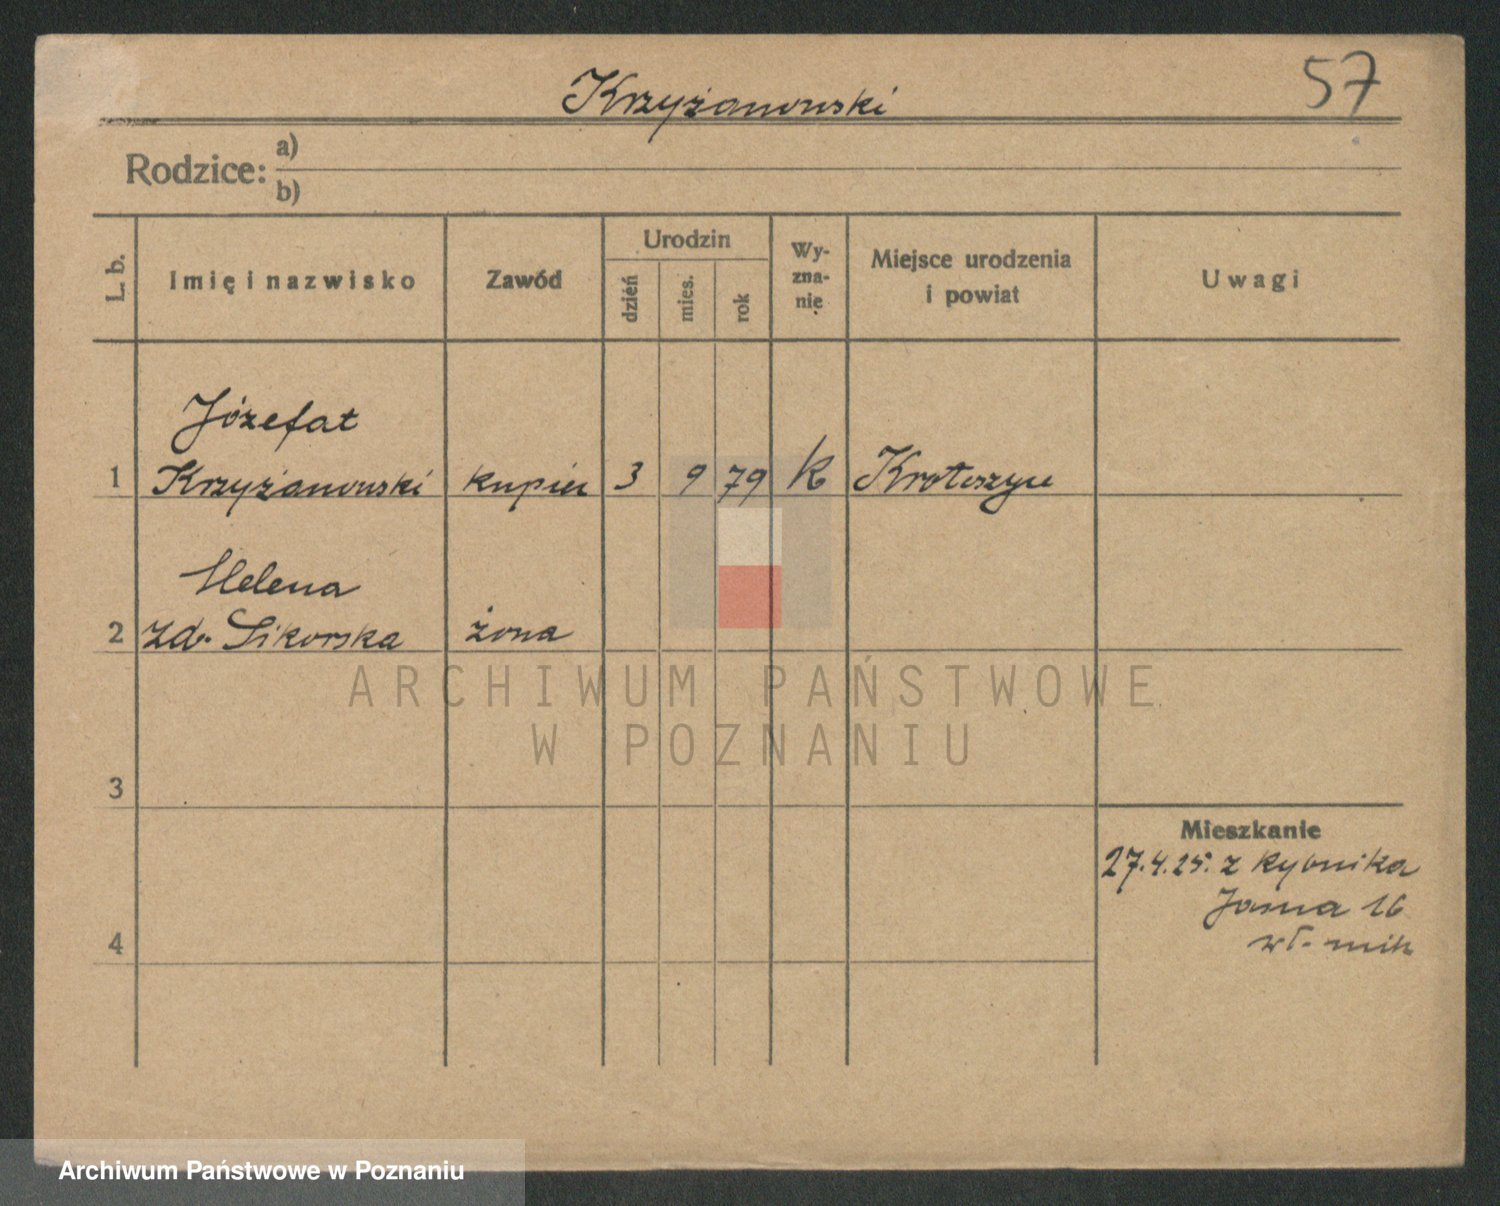 Krzyżanowski
57
Rodzice: a)
b)
L. b.
Imię i nazwisko
Zawód
Urodzin
dzień
mies.
rok
Wy-
zna-
nie
Miejsce urodzenia
i powiat
Uwagi
Józefat
1 Krzyżanowski kupiec 3 9 79 k Krotoszyn
Helena
2 zd. Sikorska żona
3
4
Mieszkanie
27.4.25. z Rybnika
Jasna 16
wł.
ARCHIWUM PAŃSTWOWE
W POZNANIU
Archiwum Państwowe w Poznaniu